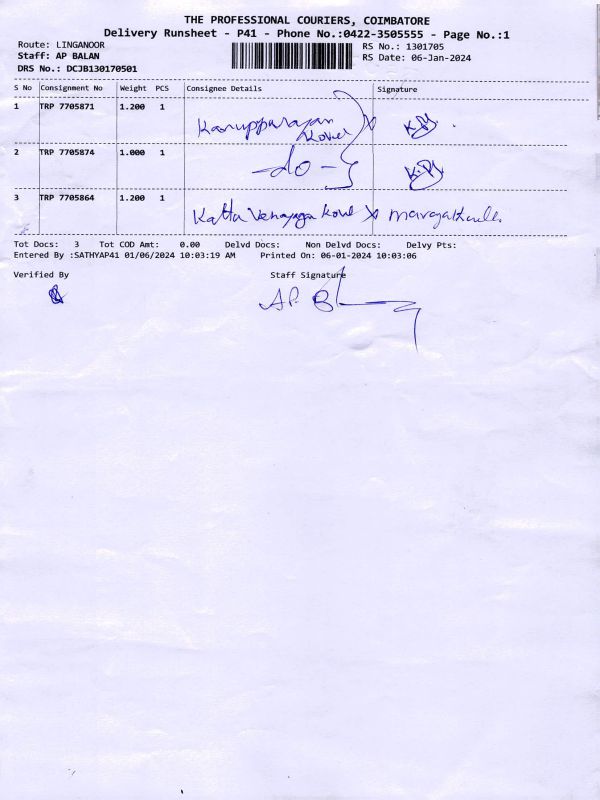 THE PROFESSIONAL COURIERS, COIMBATORE
Delivery Runsheet - P41 - Phone No.:0422-3505555 - Page No.:1
Route: LINGANOOR
RS No.: 1301705
Staff: AP BALAN
RS Date: 06-Jan-2024
DRS No.: DCJB130170501
S No Consignment No Weight PCS Consignee Details Signature
1 TRP 7705871 1.200 1
Karupparayan
Kovil
2 TRP 7705874 1.000 1
-do-
3 TRP 7705864 1.200 1
Katta Venayaga Kovil
Tot Docs: 3 Tot COD Amt: 0.00 Delvd Docs: Non Delvd Docs: Delvy Pts:
Entered By :SATHYAP41 01/06/2024 10:03:19 AM Printed On: 06-01-2024 10:03:06
Verified By Staff Signature
AP. B